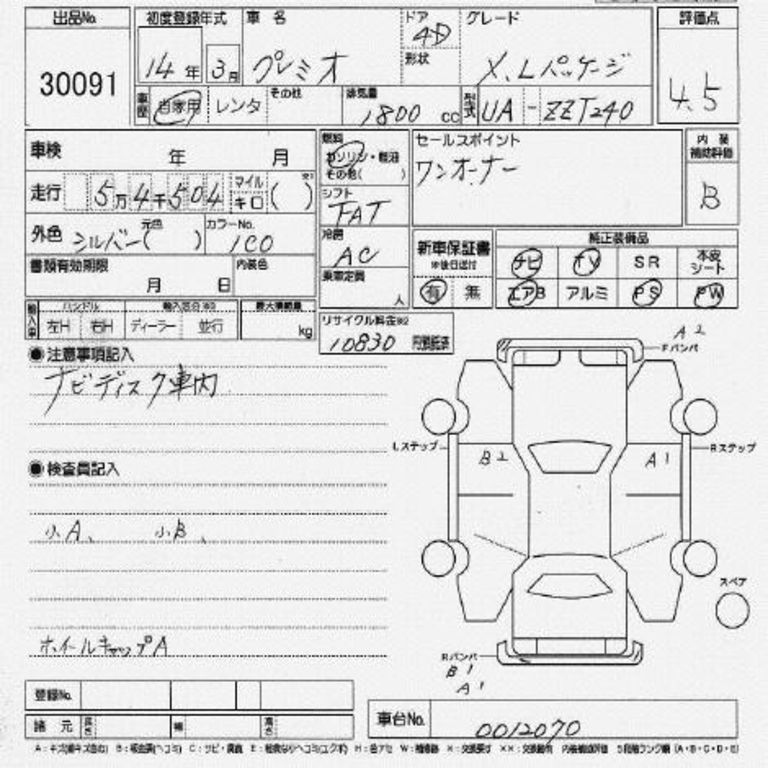 出品No. 初度登録年式 車名 ドア 4D グレード 評価点
30091 14年 3月 プレミオ 形状 X.Lパッケージ 4.5
車歴 自家用 レンタ その他 排気量 1800 cc 型式 UA - ZZT240
車検 年 月 燃料 ガソリン・軽油 その他( ) セールスポイント 内装補助評価
ワンオーナー B
走行 5万4千504 マイル キロ ( ) シフト FAT
外色 シルバー 元色( ) カラーNo. 1C0 冷房 AC 新車保証書 ※後日送付 純正装備品
書類有効期限 月 日 内装色 乗車定員 人 有 無 ナビ TV SR 本皮シート
エアB アルミ PS PW
輸入車 ハンドル 左H 右H 輸入区分 ディーラー 並行 最大積載量 kg リサイクル料金 10830 円預託済
●注意事項記入
ナビディスク車内
A2 Fバンパ
Lステップ Rステップ
B2 A1
●検査員記入
小A、 小B、
スペア
ホイールキャップA
Rバンパ
B1
A1
登録No.
諸元 長さ 幅 高さ 車台No. 0012070